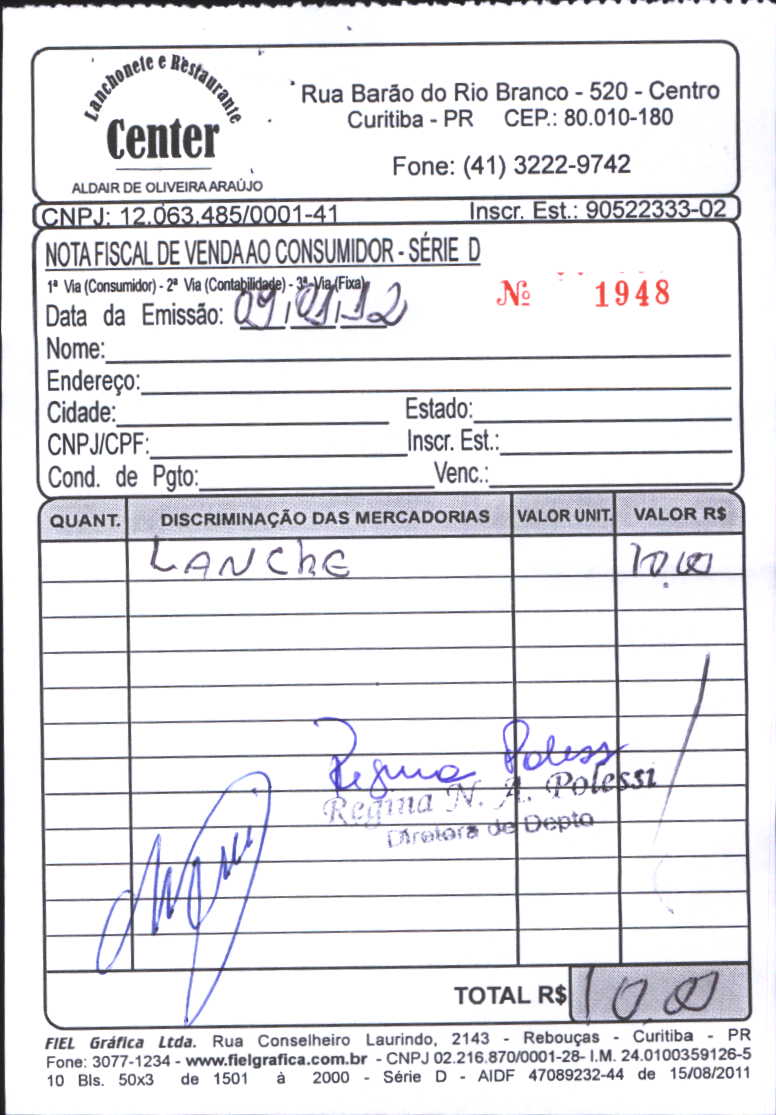 Lanchonete e Restaurante
Center
ALDAIR DE OLIVEIRA ARAÚJO
Rua Barão do Rio Branco - 520 - Centro
Curitiba - PR CEP.: 80.010-180
Fone: (41) 3222-9742
CNPJ: 12.063.485/0001-41 Inscr. Est.: 90522333-02
NOTA FISCAL DE VENDA AO CONSUMIDOR - SÉRIE D
1ª Via (Consumidor) - 2ª Via (Contabilidade) - 3ª Via (Fixa)
Nº 1948
Data da Emissão: 09/01/12
Nome:
Endereço:
Cidade: Estado:
CNPJ/CPF: Inscr. Est.:
Cond. de Pgto: Venc.:
QUANT. DISCRIMINAÇÃO DAS MERCADORIAS VALOR UNIT. VALOR R$
LANCHE 10,00
Regina Polessi
Regina N. A. Polessi
Diretora de Depto
TOTAL R$ 10,00
FIEL Gráfica Ltda. Rua Conselheiro Laurindo, 2143 - Rebouças - Curitiba - PR
Fone: 3077-1234 - www.fielgrafica.com.br - CNPJ 02.216.870/0001-28- I.M. 24.0100359126-5
10 Bls. 50x3 de 1501 à 2000 - Série D - AIDF 47089232-44 de 15/08/2011